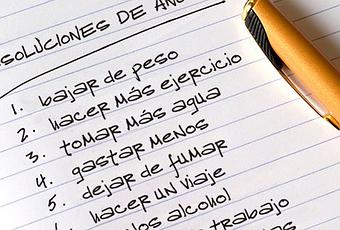 SOLUCIONES DE AÑ
1. bajar de peso
2. hacer más ejercicio
3. tomar más agua
4. gastar menos
5. dejar de fumar
hacer un viaje
nos alcohol
trabajo